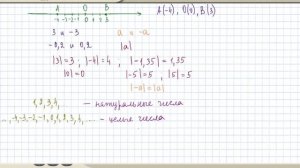 A O B
-4 -3 -2 -1 0 1 2 3
A(-4), O(0), B(3)
3 и -3 a и -a
-0,2 и 0,2 |a|
|3| = 3 ; |-4| = 4 ; |-1,35| = 1,35
|0| = 0 |-5| = 5 , |5| = 5
|-a| = |a|
1, 2, 3, 4, — натуральные числа
..., -4, -3, -2, -1, 0, 1, 2, 3, 4, ..... — целые числа